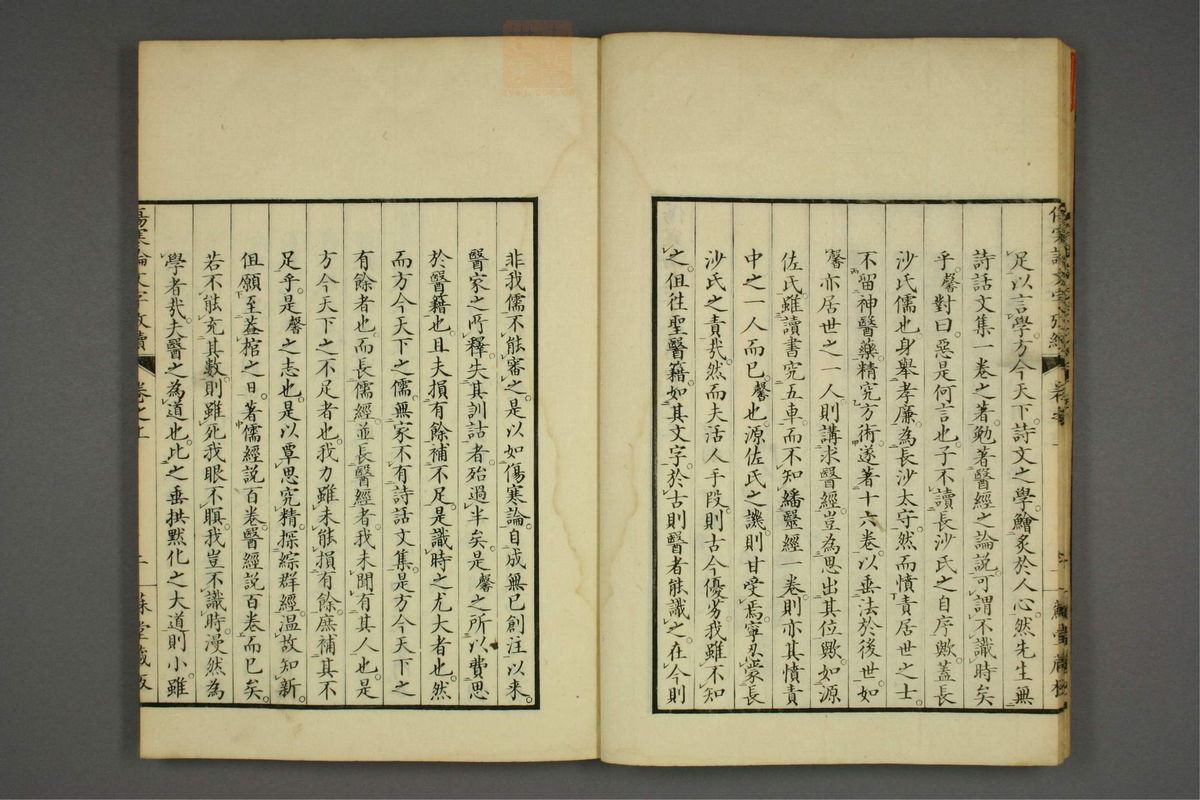 足以言學方今天下詩文之學鱠炙於人心然先生無
詩話文集一卷之著勉著醫經之論說可謂不識時矣
乎馨對曰惡是何言也子不讀長沙氏之自序歟蓋長
沙氏儒也身舉孝廉為長沙太守然而憤責居世之士
不留神醫藥精究方術遂著十六卷以垂法於後世如
馨亦居世之一人則講求醫經豈為思出其位歟如源
佐氏雖讀書究五車而不知繙靈經一卷則亦其憤責
中之一人而已馨也源佐氏之譏則甘受焉寧忍蒙長
沙氏之責哉然而夫活人手段則古今優劣我雖不知
之但徃聖醫籍如其文字於古則醫者能識之在今則
非我儒不能審之是以如傷寒論自成無已創注以来
醫家之所釋失其訓詁者殆過半矣是馨之所以費思
於醫籍也且夫損有餘補不足是識時之尤大者也然
而方今天下之儒無家不有詩話文集是方今天下之
有餘者也而長儒經並長醫經者我未聞有其人也是
方今天下之不足者也我力雖未能損有餘庶補其不
足乎是馨之志也是以覃思究精探綜群經温故知新
但願至蓋棺之日著儒經説百卷醫經説百卷而已矣
若不能充其數則雖死我眼不瞑我豈不識時漫然為
學者哉夫醫之為道也此之垂拱黙化之大道則小雖
傷寒論文字攷續 卷之上